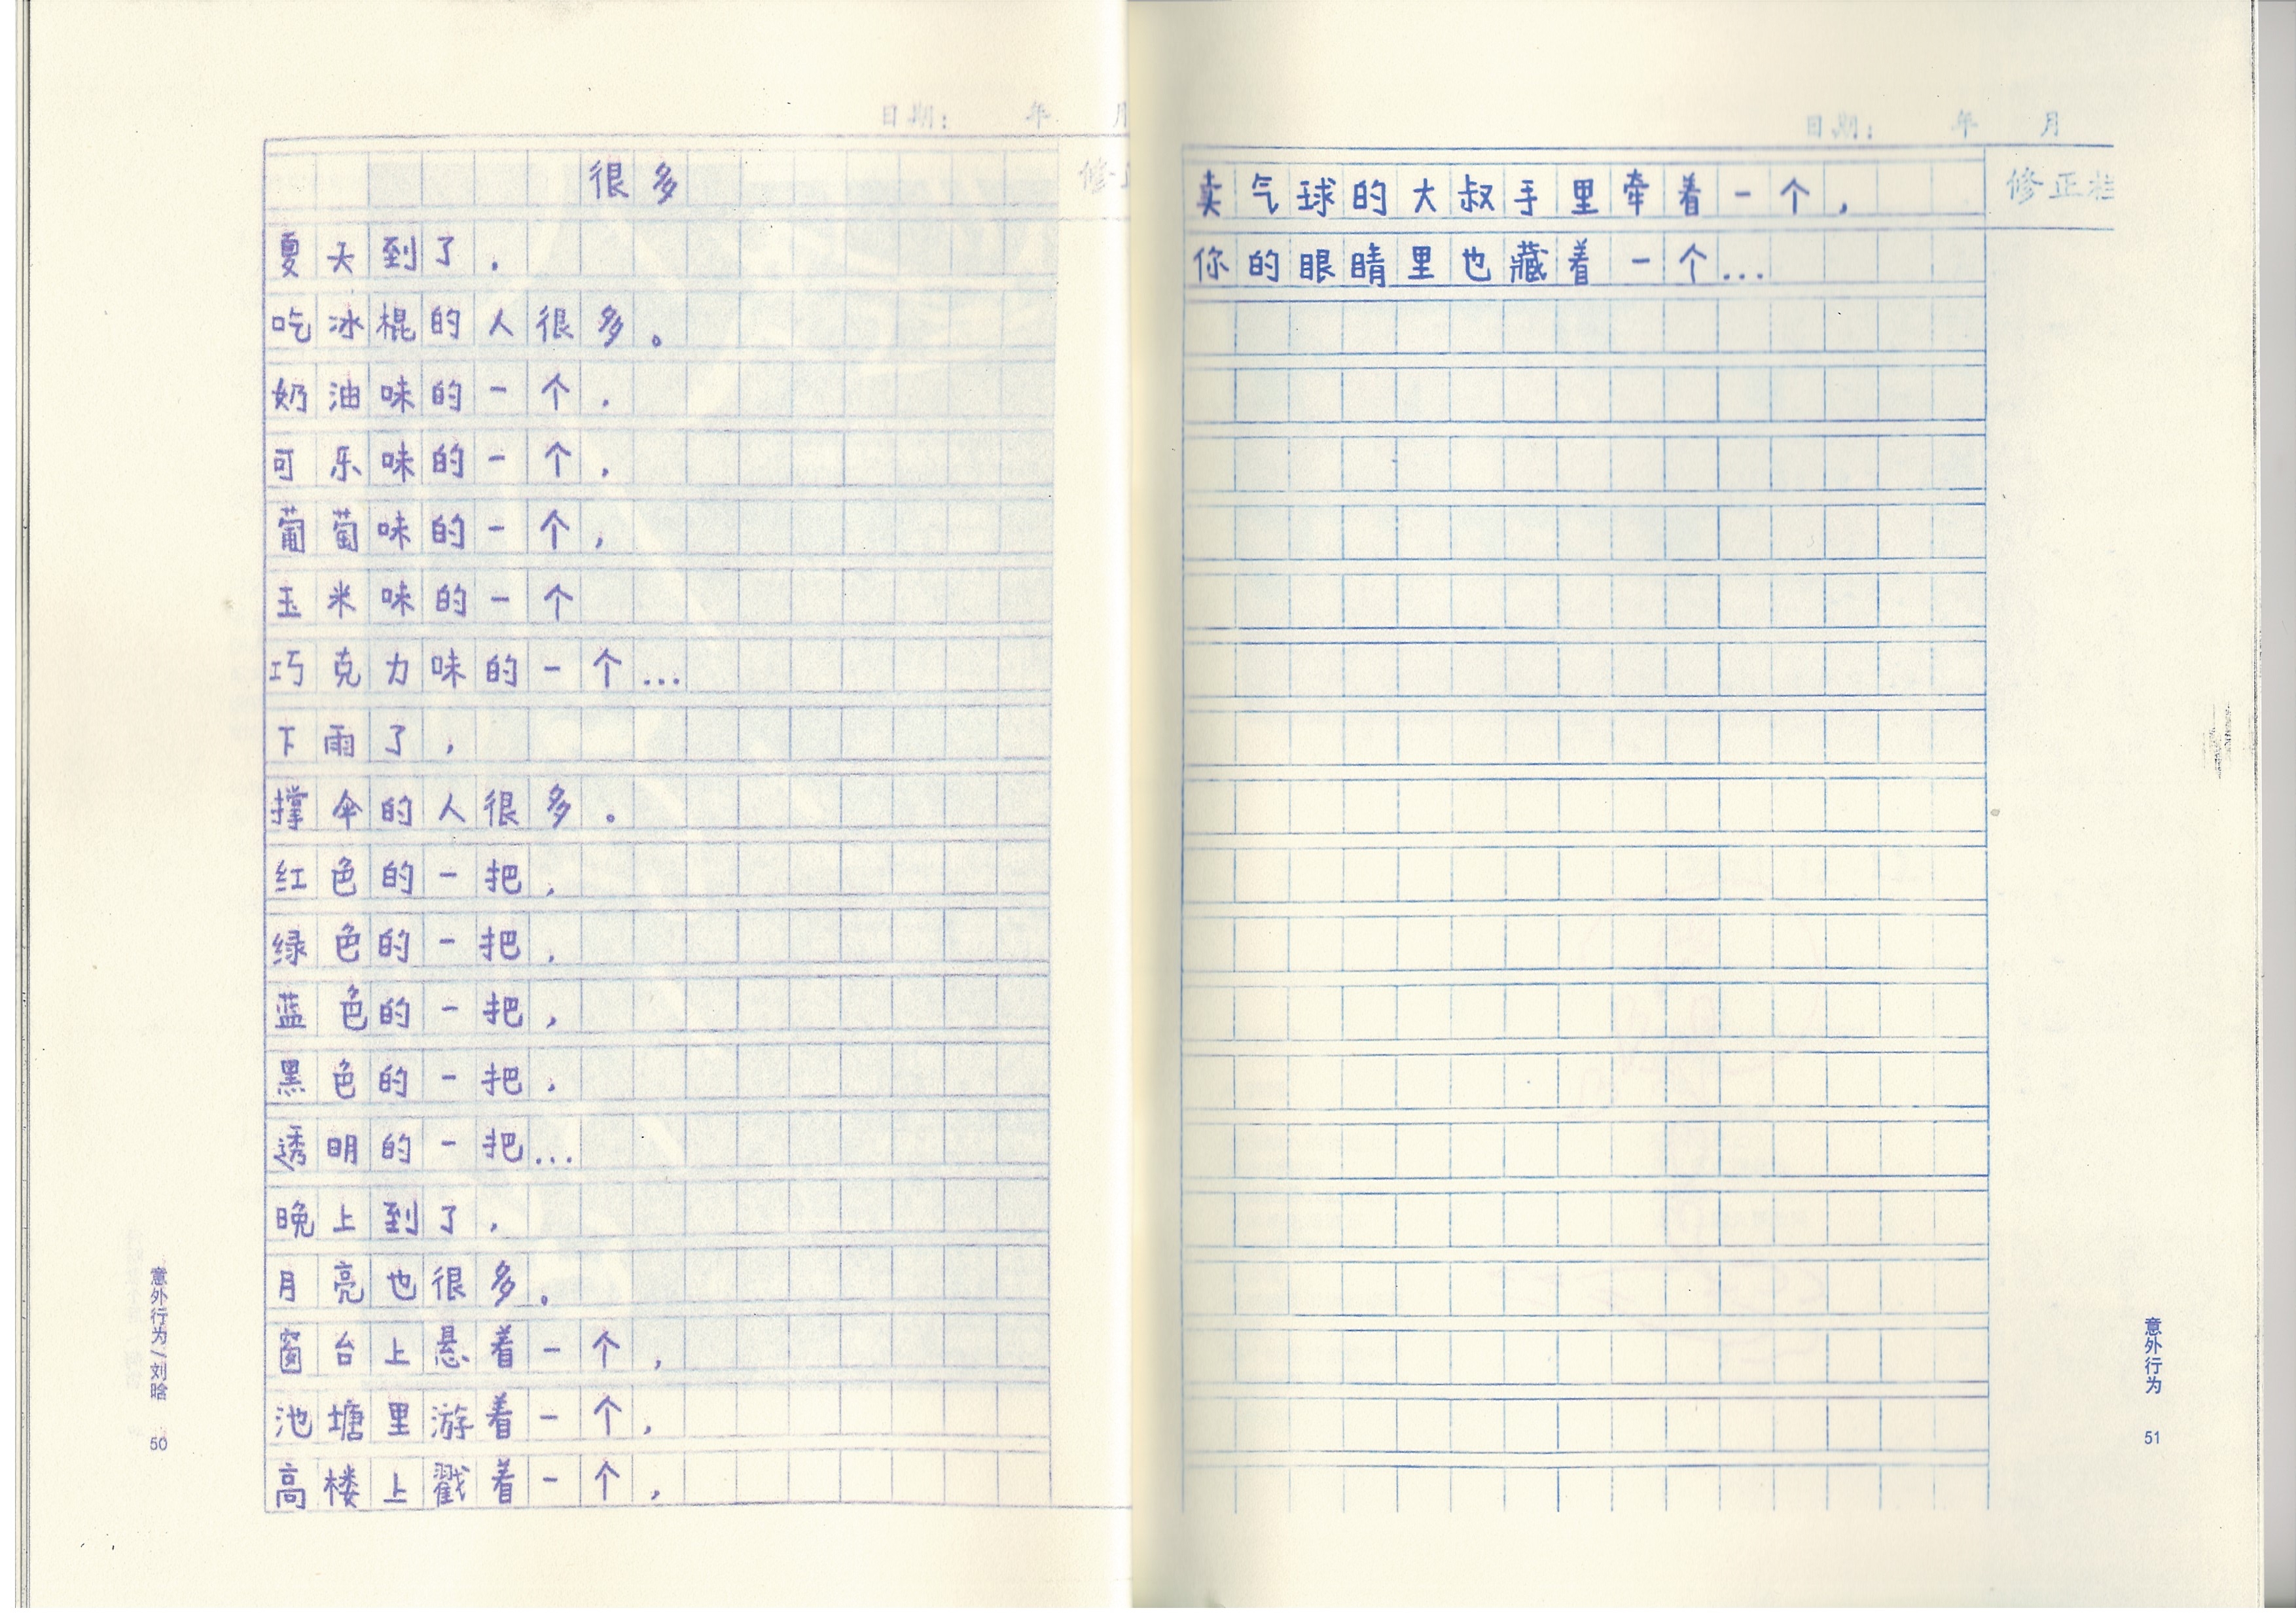 日期： 年 月
很多
夏天到了，
吃冰棍的人很多。
奶油味的一个，
可乐味的一个，
葡萄味的一个，
玉米味的一个
巧克力味的一个...
下雨了，
撑伞的人很多。
红色的一把，
绿色的一把，
蓝色的一把，
黑色的一把，
透明的一把...
晚上到了，
月亮也很多。
窗台上悬着一个，
池塘里游着一个，
高楼上戳着一个，
意外行为/刘晗 50
日期： 年 月
修正栏
卖气球的大叔手里牵着一个，
你的眼睛里也藏着一个...
意外行为 51